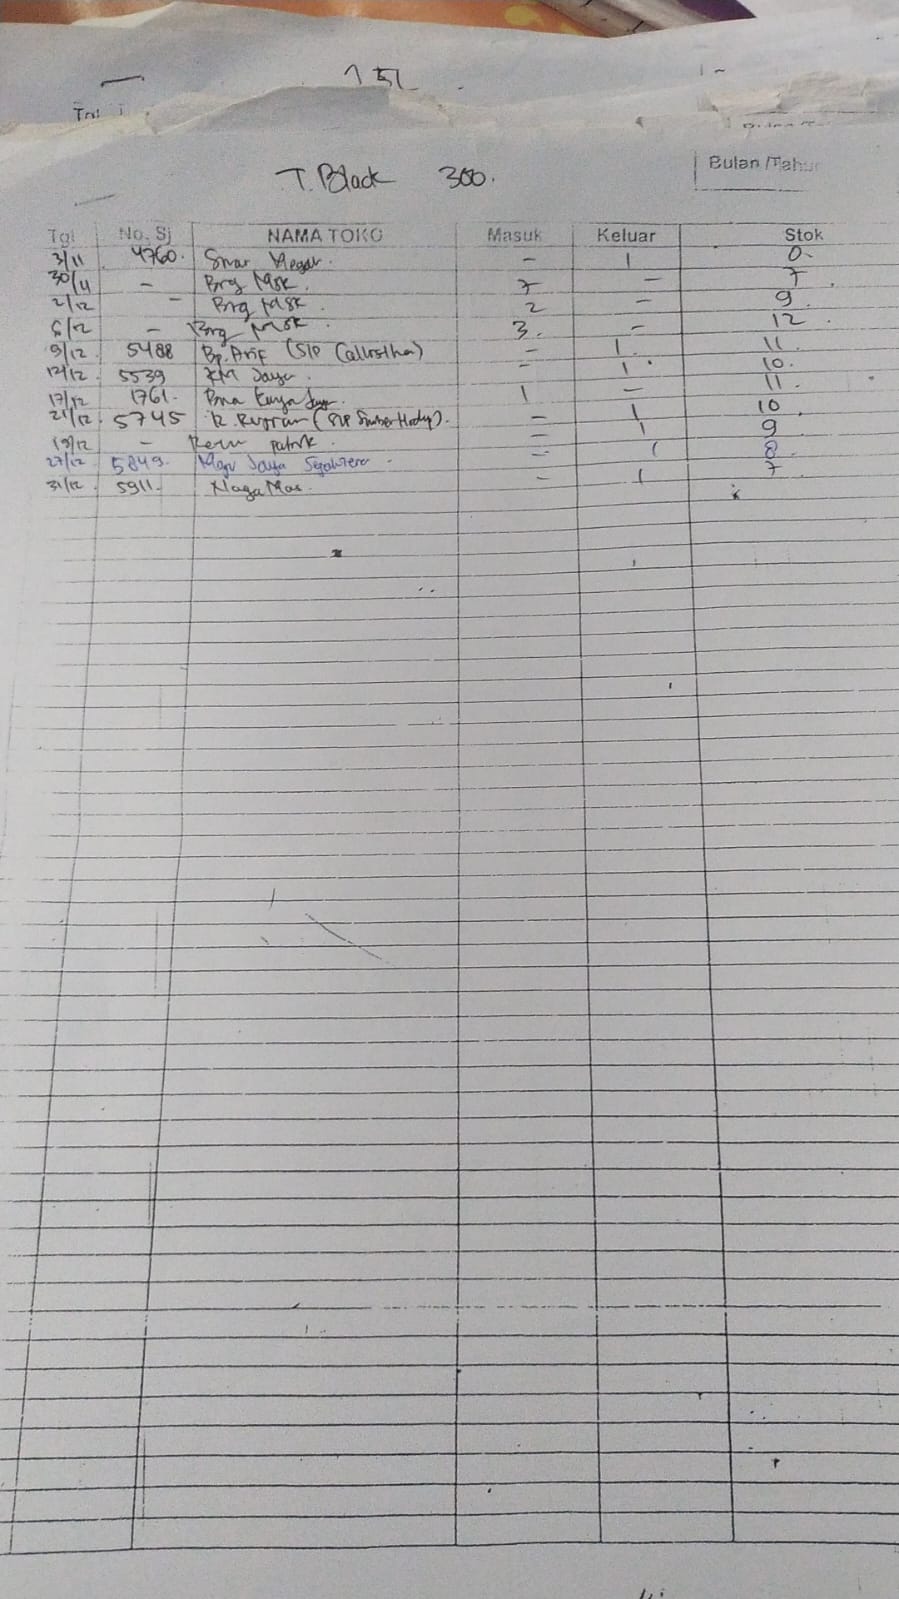 1 5L
Tgl
T. Black 300.
Bulan /Tahu
Tgl No. Sj NAMA TOKO Masuk Keluar Stok
3/11 4760. Sinar Megah. - 1 0.
30/11 - Brg Msk. 7 - 7
2/12 - Brg Msk. 2 - 9
6/12 - Brg Msk. 3. - 12
9/12. 5488 Bp. Arif (SIP ) - 1. 11
12/12. 5539 KM Jaya. - 1 10.
17/12 1761. Jaya. 1 - 11.
21/12. 5745 (SIP Sumber ). - 1 10
19/12 - Retur Pabrik. - 1 9
27/12. 5849. Jaya Sejahtera - 1 8
31/12. 5911. Naga Mas. - 1 7